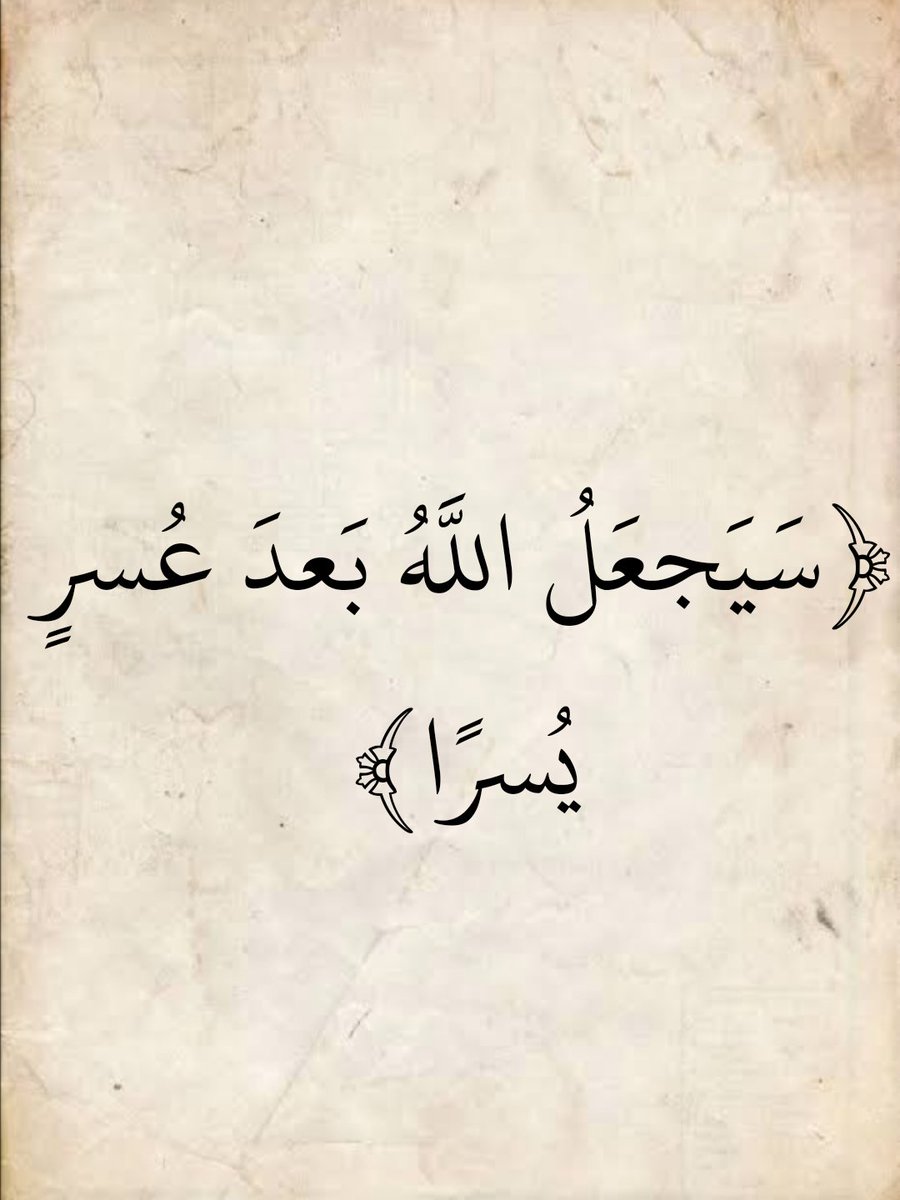 ﴿سَيَجعَلُ اللَّهُ بَعدَ عُسرٍ
يُسرًا﴾